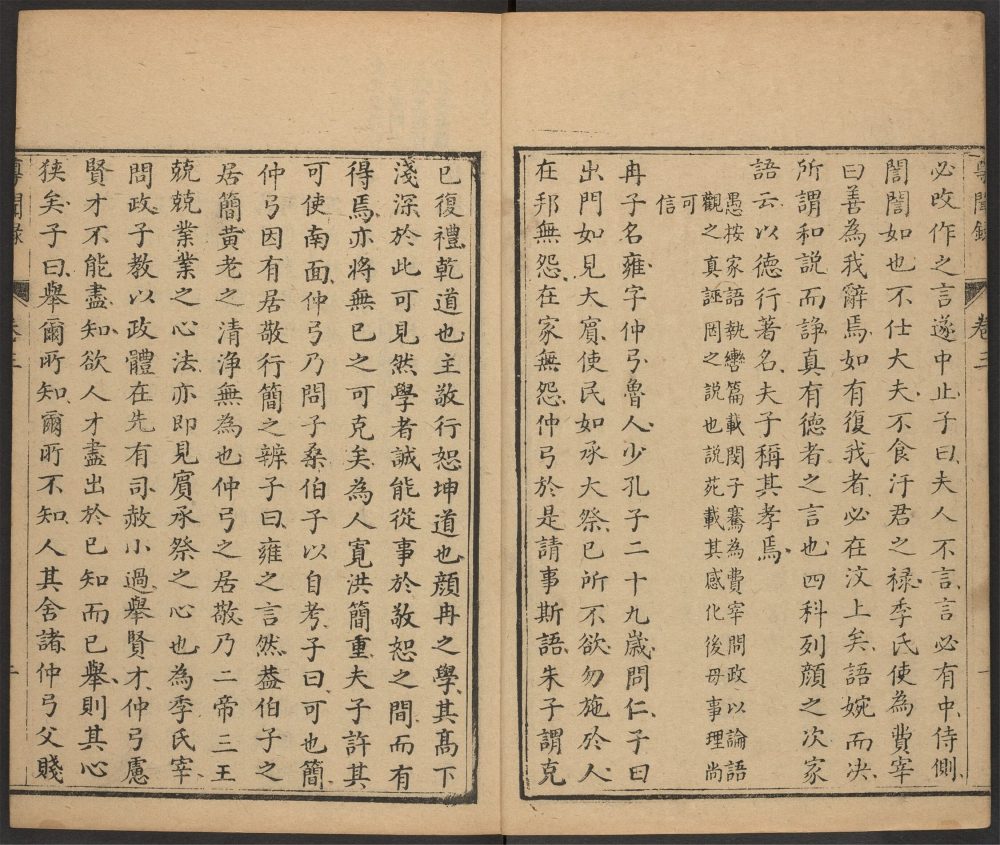 卷三
一
必改作之言遂中止子曰夫人不言言必有中侍側
誾誾如也不仕大夫不食汙君之祿季氏使為費宰
曰善為我辭焉如有復我者必在汶上矣語婉而决
所謂和說而諍真有德者之言也四科列顏之次家
語云以德行著名夫子稱其孝焉
愚按家語執轡篇載閔子騫為費宰問政以論語
觀之真誣罔之說也說苑載其感化後母事理尚
可
信
冉子名雍字仲弓魯人少孔子二十九歲問仁子曰
出門如見大賓使民如承大祭已所不欲勿施於人
在邦無怨在家無怨仲弓於是請事斯語朱子謂克
已復禮乾道也主敬行恕坤道也顏冉之學其高下
淺深於此可見然學者誠能從事於敬恕之間而有
得焉亦將無已之可克矣為人寬洪簡重夫子許其
可使南面仲弓乃問子桑伯子以自考子曰可也簡
仲弓因有居敬行簡之辨子曰雍之言然葢伯子之
居簡黃老之清净無為也仲弓之居敬乃二帝三王
兢兢業業之心法亦即見賓承祭之心也為季氏宰
問政子教以政體在先有司赦小過舉賢才仲弓慮
賢才不能盡知欲人才盡出於已知而已舉則其心
狹矣子曰舉爾所知爾所不知人其舍諸仲弓父賤
卷三
二